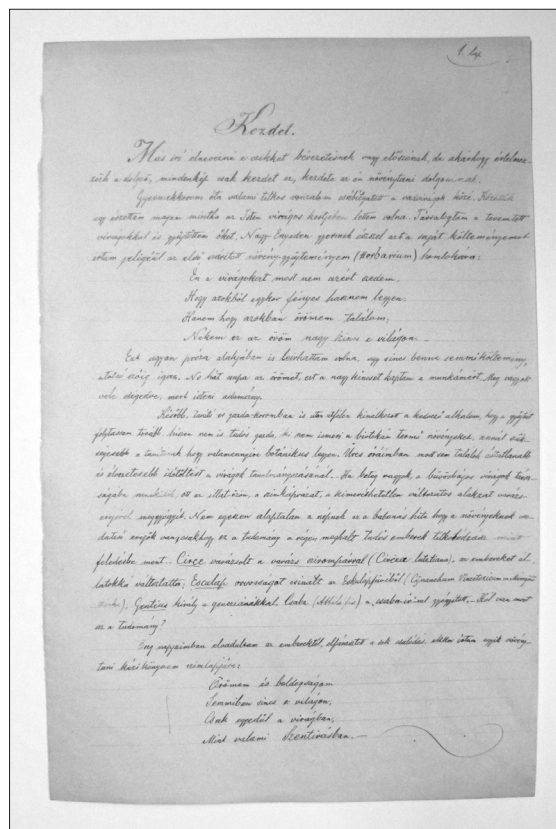 1. lap
Kezdet.
Más író elnevezné e cikket bevezetésnek vagy előszónak, de akárhogy értelmez-
zük a dolgot, mindenkép csak kezdet ez, kezdete az én növénytani
Gyermekkorom óta valami titkos vonzalom a virágok közé.
úgy éreztem magam mintha az Isten virágos kertjében lettem volna. Társalogtam a teremtett
virágokkal és gyűjtöttem őket. Nagy Enyeden gyermek ésszel ezt a saját költeményemet
írtam jeligéül az első növénygyűjteményem (herbarium) homlokára:
Én a virágokat most nem azért szedem,
Hogy azokból egykor fényes hasznom legyen;
Hanem hogy azokban örömem találom,
Nekem ez az öröm nagy kincs e világon. —
Ezt ugyan próza alakjában is leírhattam volna, úgy sincs benne semmi költemény,
utolsó szóig igaz. No hát az örömet, ezt a nagy kincset kaptam a munkámért. Meg vagyok
vele elégedve, mert isteni adomány.
Később, és gazda koromban is kínálkozott a kedvező alkalom, hogy a gyűjtést
folytassam tovább, hiszen nem is tudós gazda, ki nem ismeri a birtokán termő növényeket, annál szük-
ségesebb a tanárnak hogy valamennyire botanikus legyen. Üres óráimban most sem találok ártatlanabb
és élvezetesebb időtöltést a virágok tanulmányozásánál. Ha beteg vagyok, a bűvös bájos virágok társa-
ságába ott az illat özön, a színkáprázat, a kimeríthetetlen változatos alakzat varázs
erejével meggyógyít. Nem egészen alaptalan a népnek az a babonás hite hogy a növényeknek
erejök van, csakhogy ez a tudomány a régen meghalt tudós emberek titka mint
feledésbe ment. Circe varázsolt a varázs (Circaea lutetiana), az embereket ál-
latokká változtatta; Esculap orvosságot csinált az (Cynanchum Vincetoxicum
), Gentius király a gencziánákkal, Csaba (Attila fia) a csaba-írével gyógyított, — Hol van most
az a tudomány?
Én napjaimban elvadultam az emberektől, elfárasztott a sok csalódás, ekkor írtam egyik növény-
tani kézikönyvem címlapjára:
Örömem és boldogságom
Semmiben sincs a világon,
Csak egyedül a virágban,
Mint valami Szentírásban. —